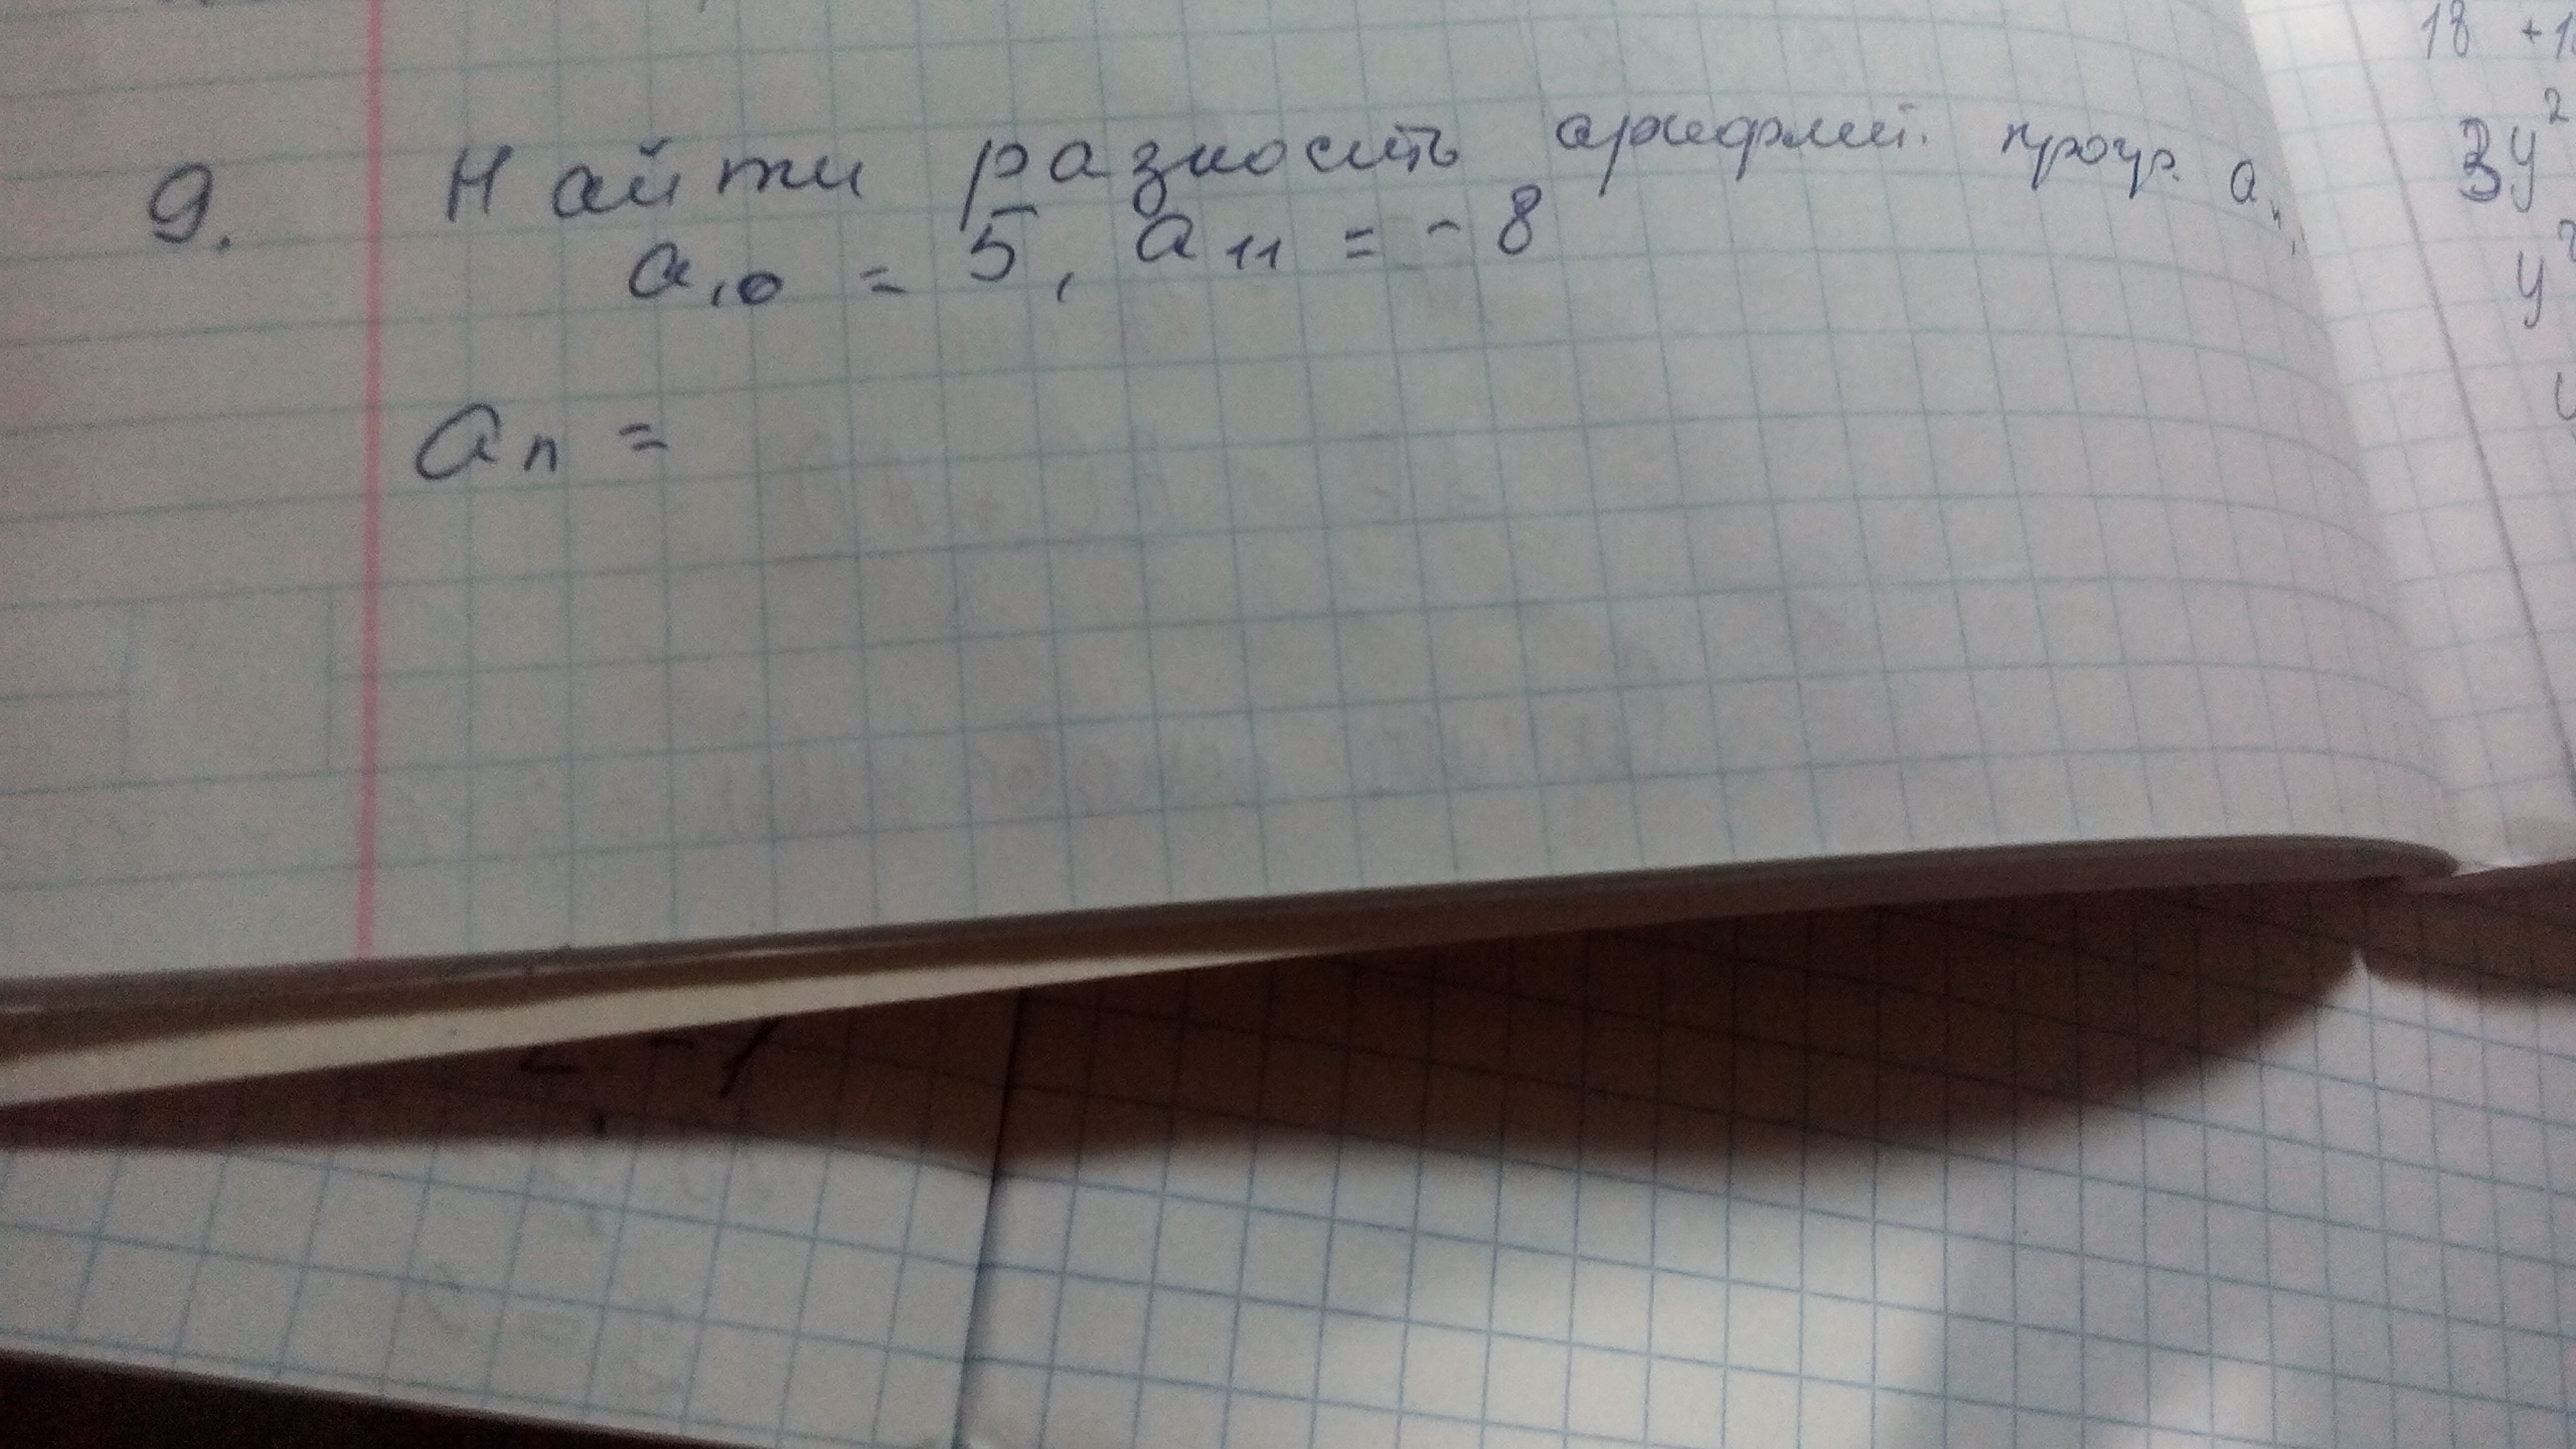 9. Найти разность арифмет. прогр. aₙ,
a₁₀ = 5, a₁₁ = - 8
aₙ =
18 +1
3y²
y²